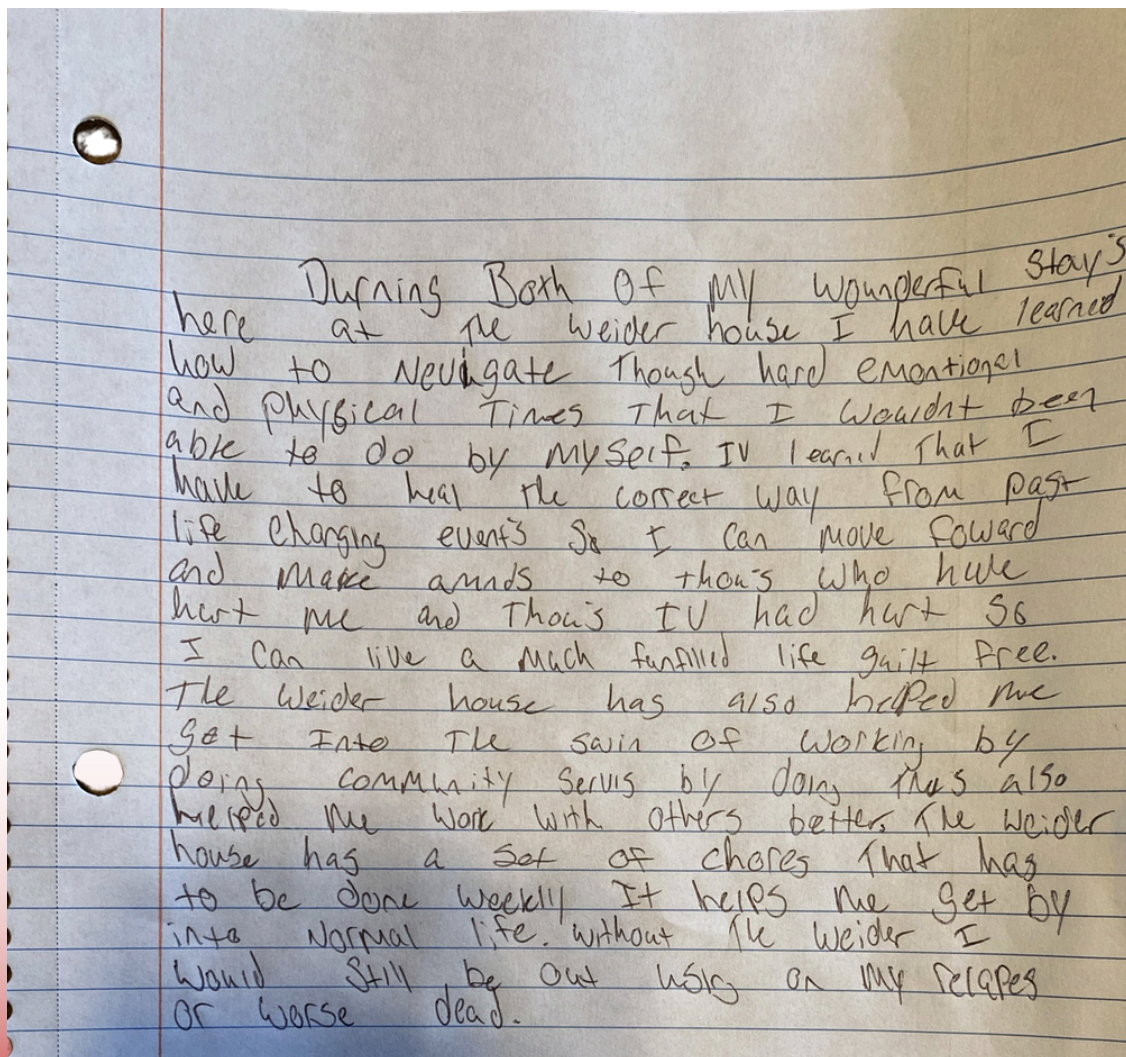 Durning Both Of My Wounderful Stay's
here at The Weider house I have learned
how to Nevigate Though hard emontional
and physical Times That I Wouldnt been
able to do by My Self. IV learnd That I
have to heal the correct way from past
life Changing event's So I Can move foward
and Make amnds to thou's who have
hurt me and Thou's IV had hurt So
I Can live a Much funfilled life guilt free.
The Weider house has also helped me
get Into The swin of Working by
doing community Servis by doing this also
helped me Work With others better. The Weider
house has a Set of chores That has
to be done Weekly It helps me get by
into Normal life. Without The Weider I
Would Still be Out using on My relapes
or Worse dead.